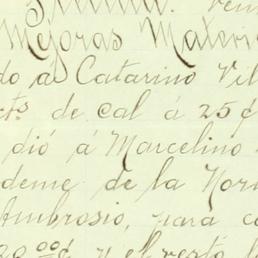 Mejoras Mater
do á Catarino Vil
cts de cal á 25 ¢
dió á Marcelino
deme de la Nor
Ambrosio, para c
00 ¢ y el resto